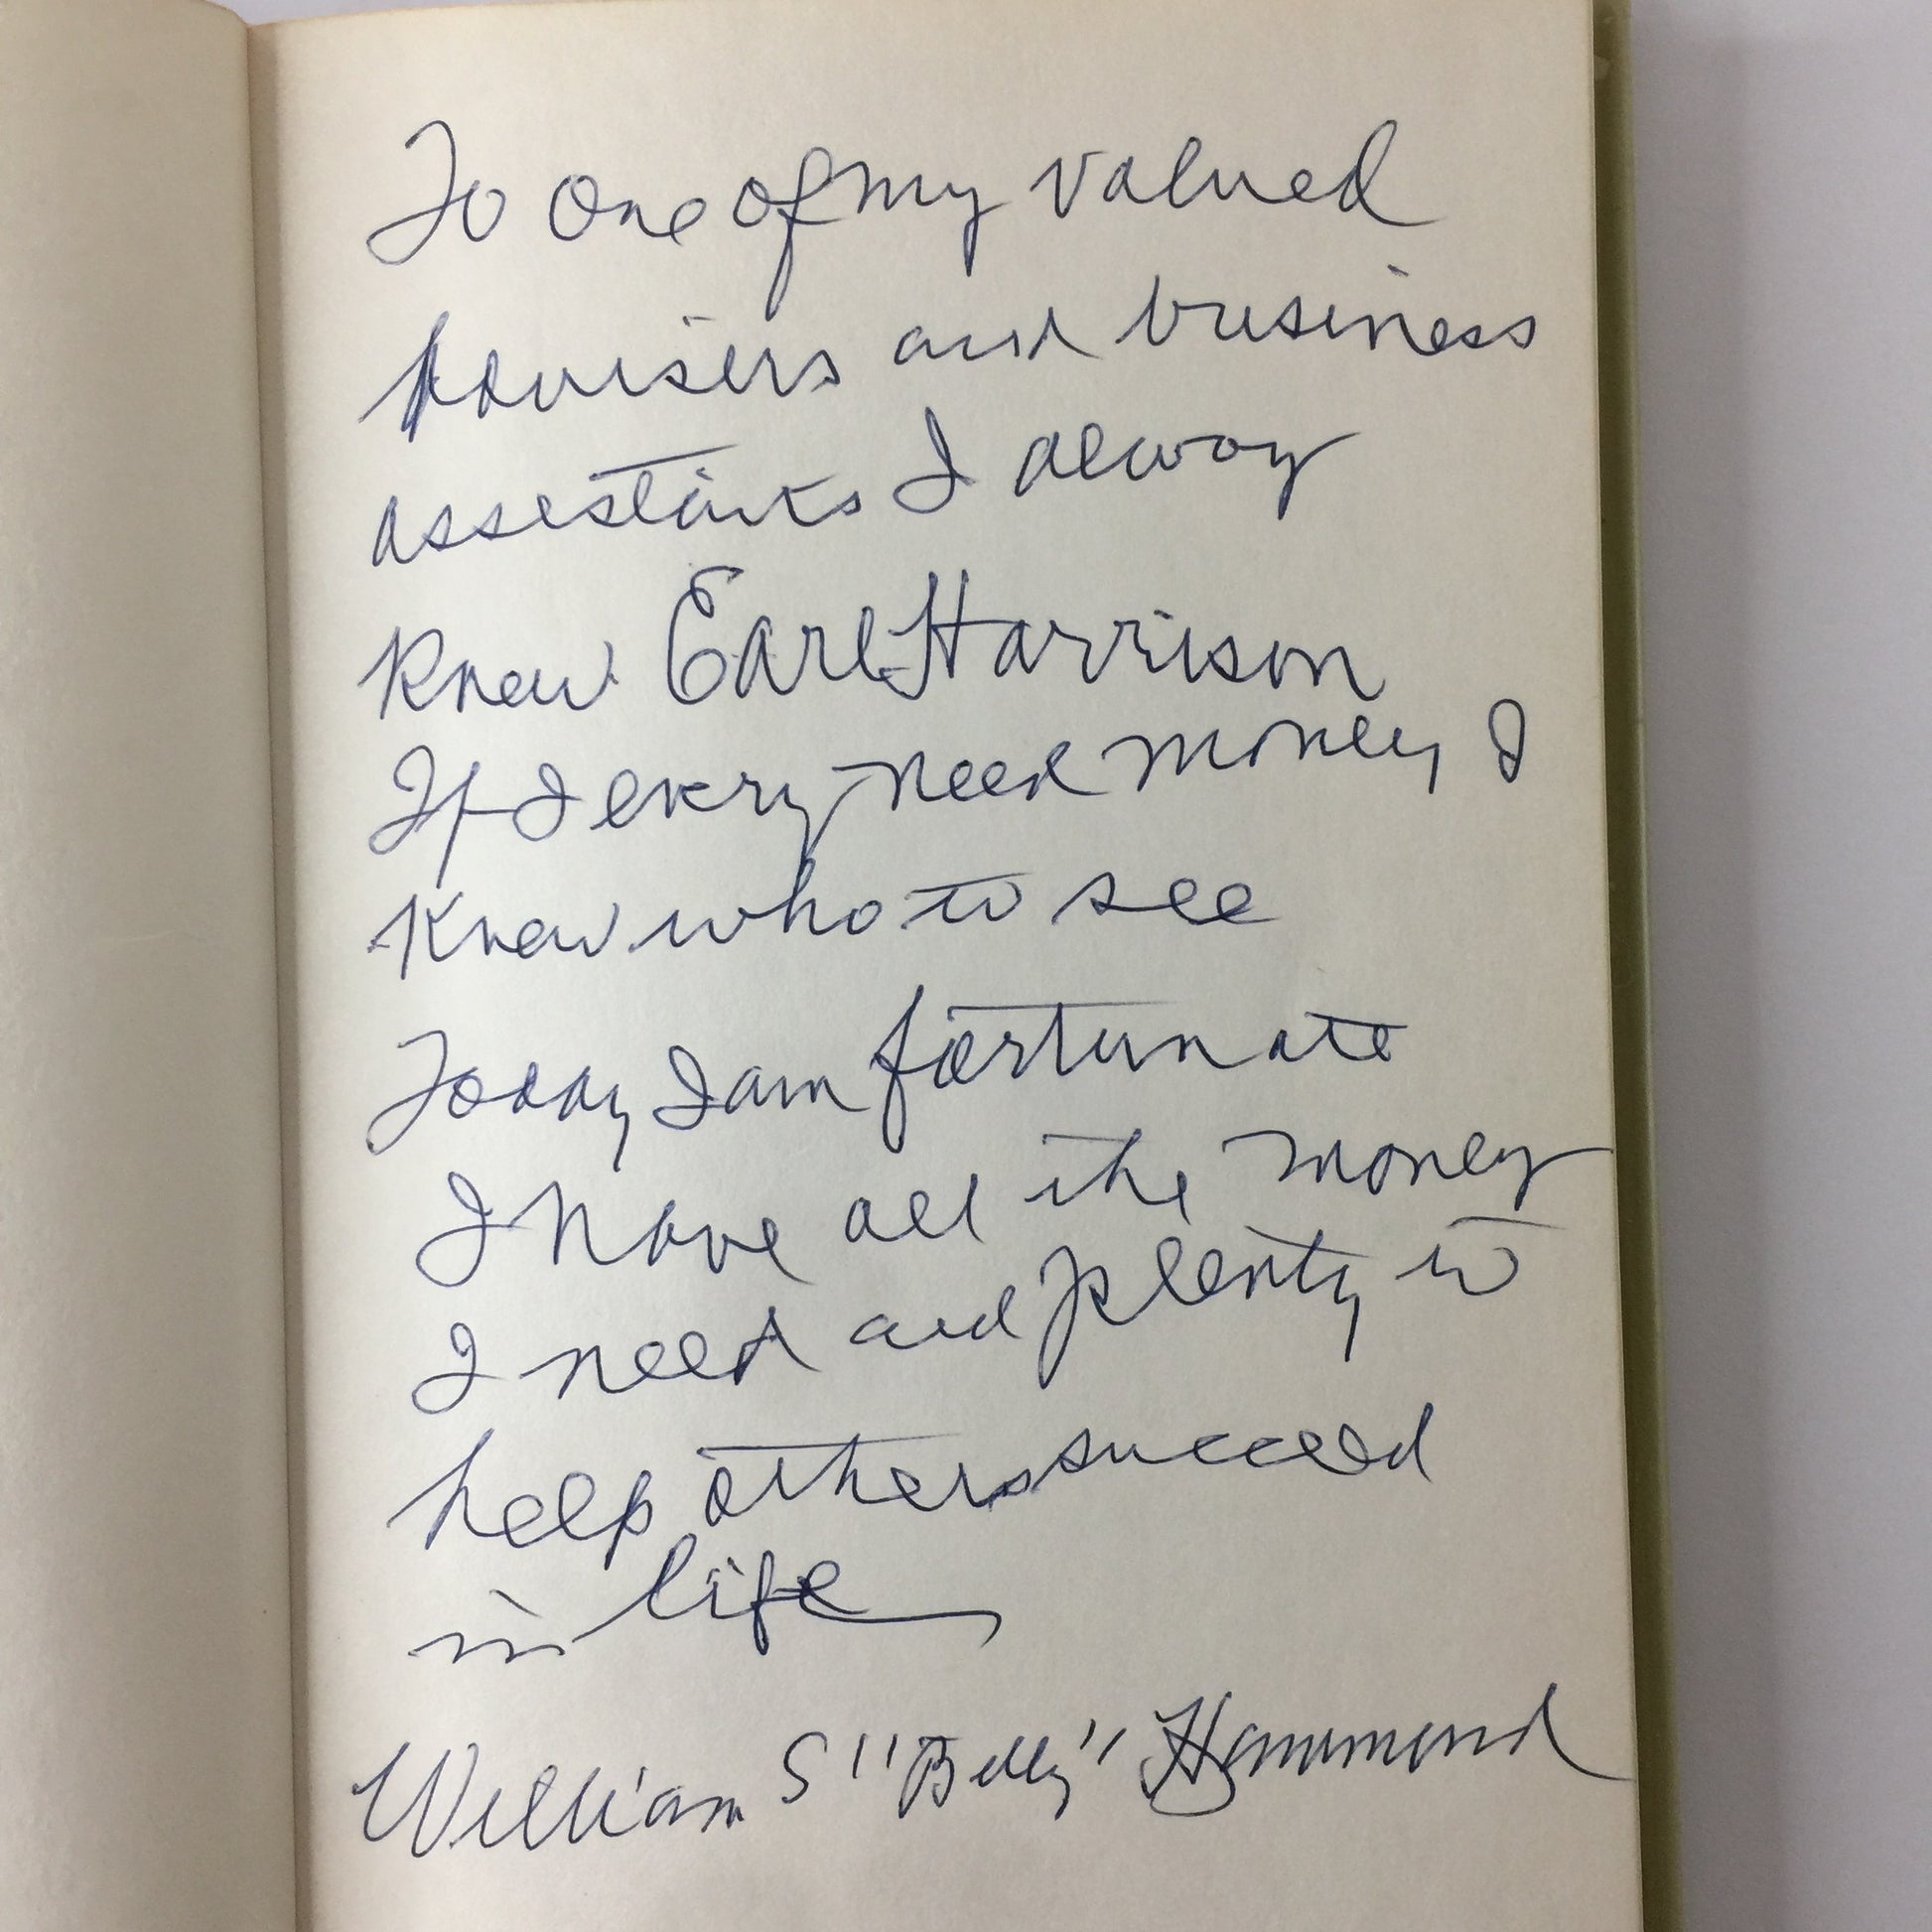 To One of my valued
Advisers and business
assestants I alway
Knew Earl Harrison
If I every need money I
Knew who to see
Today I am fortunate
I have all the money
I need and plenty to
help others succeed
in life
William S "Billy" Hammond